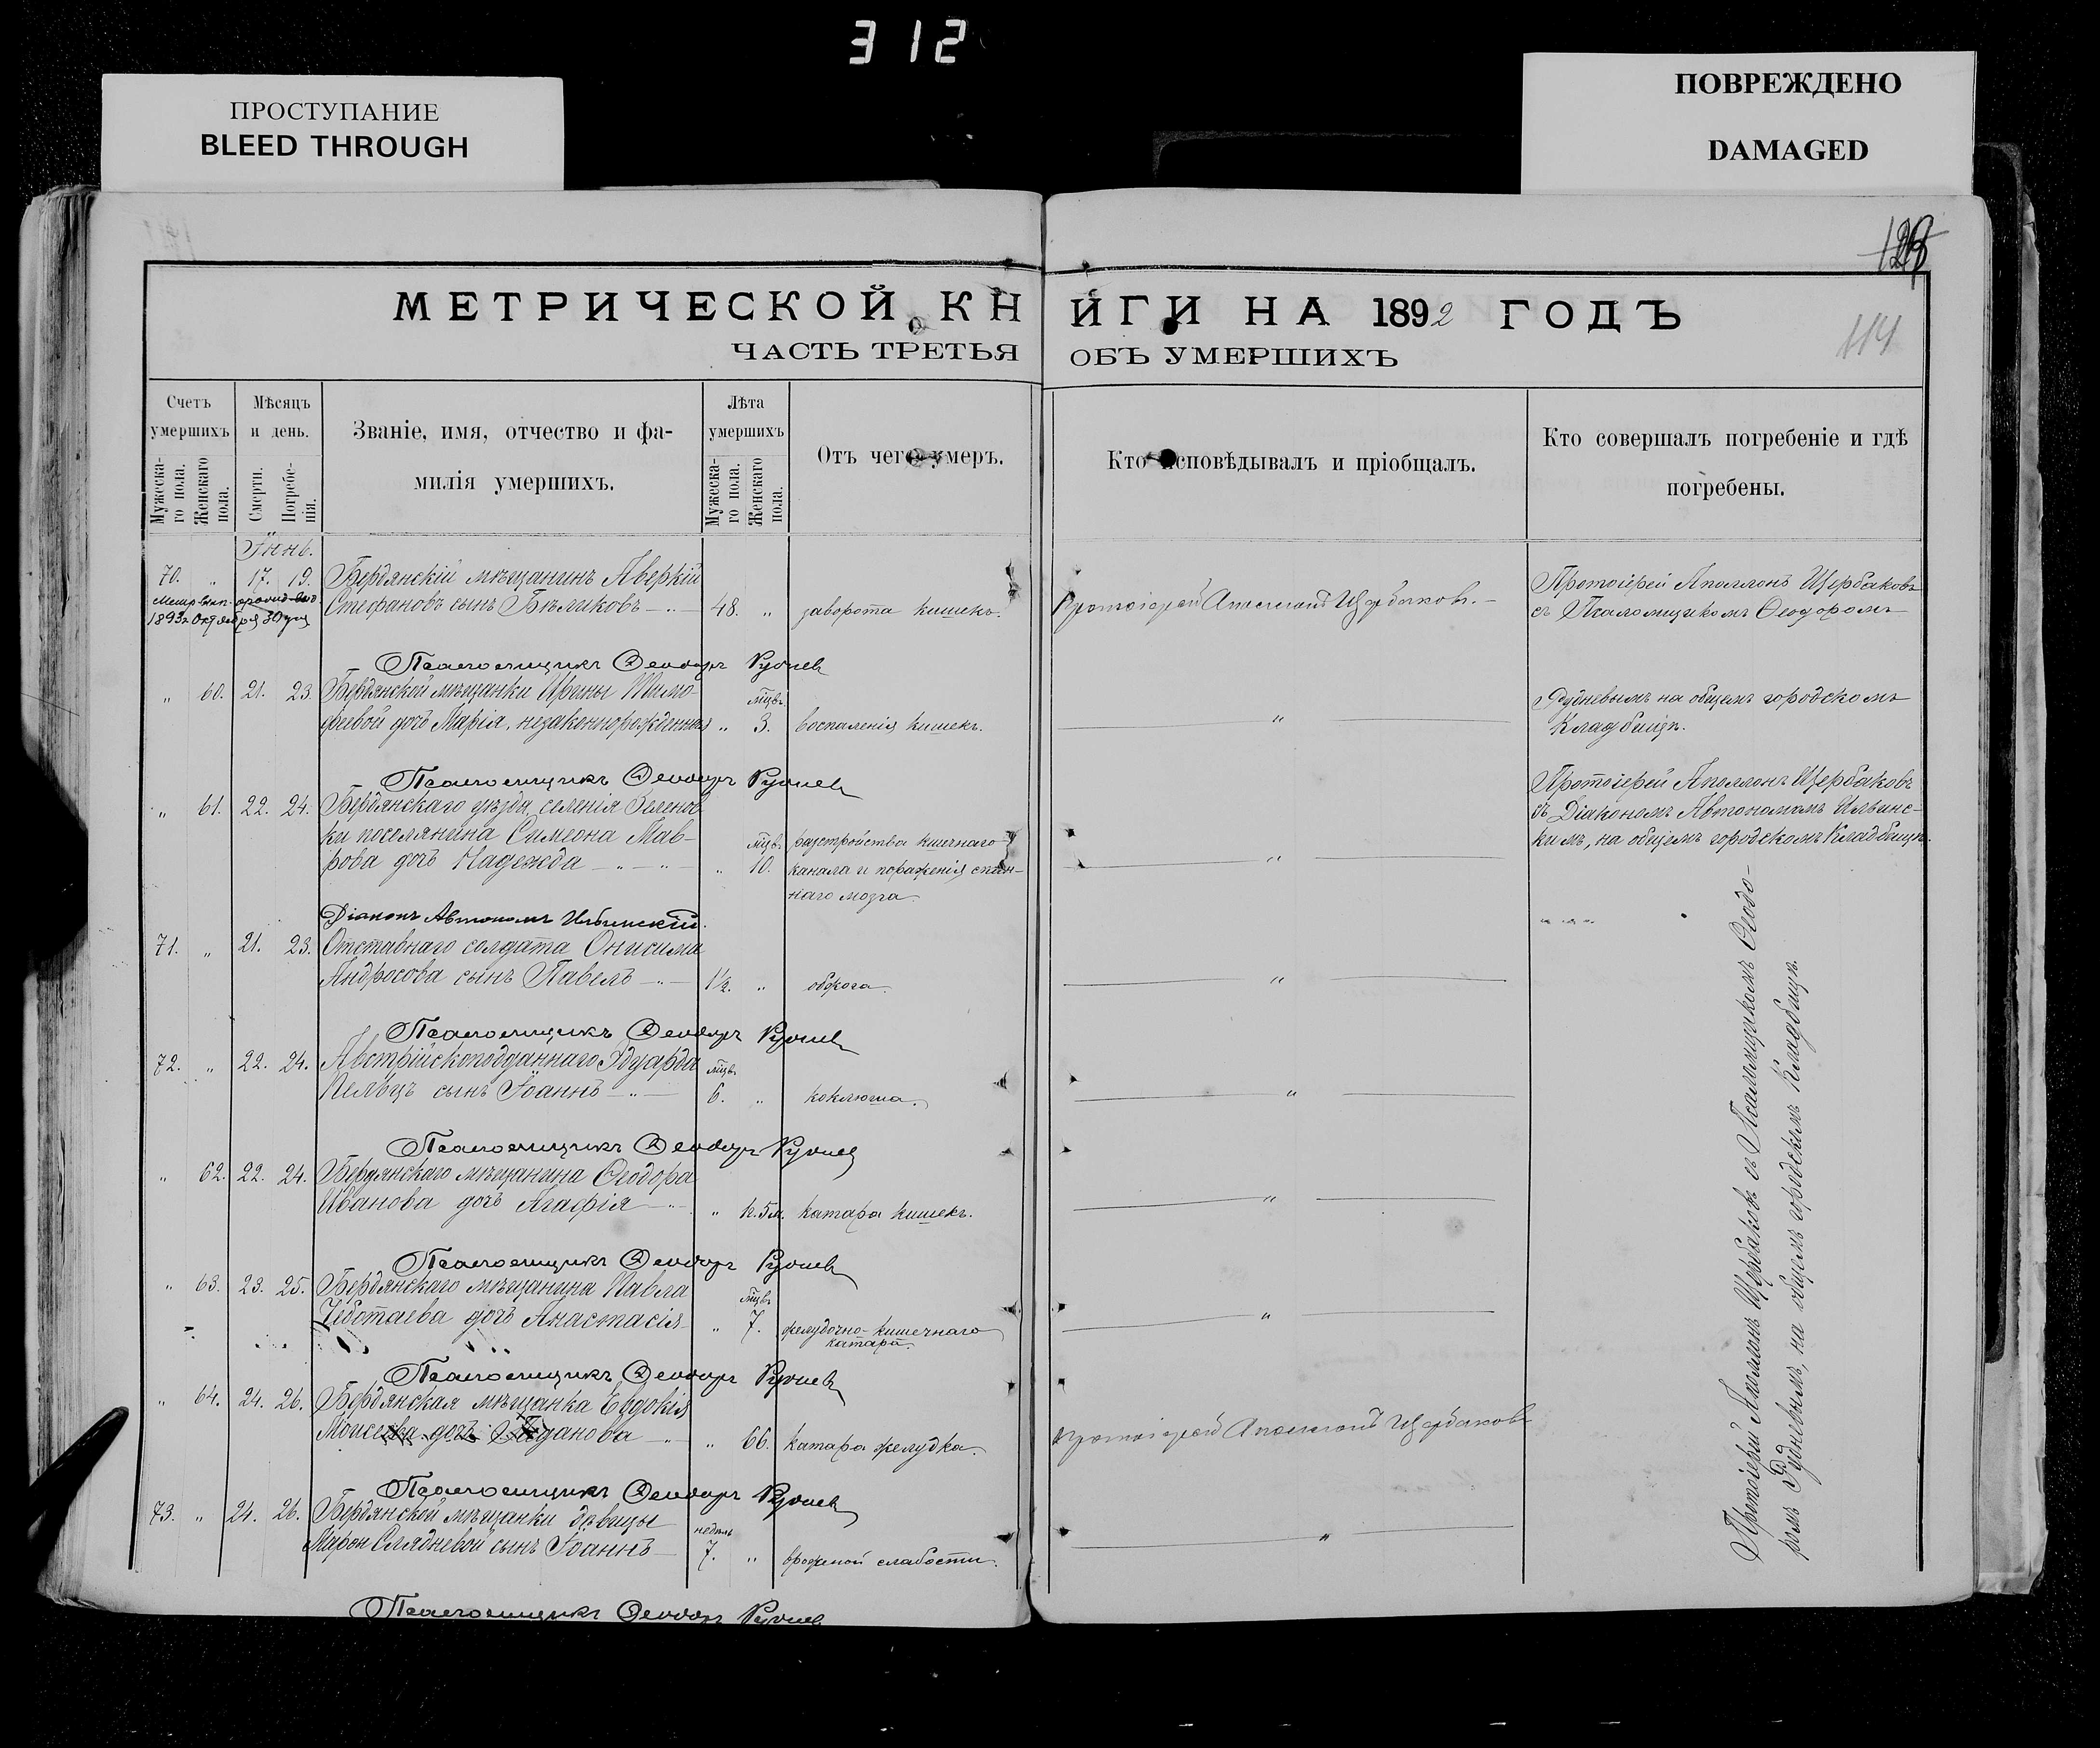 312
ПРОСТУПАНИЕ
BLEED THROUGH
ПОВРЕЖДЕНО
DAMAGED
114
МЕТРИЧЕСКОЙ КНИГИ НА 1892 ГОДЪ
ЧАСТЬ ТРЕТЬЯ ОБЪ УМЕРШИХЪ
Счетъ умершихъ
Мужеска-го пола.
Женскаго пола.
Мѣсяцъ и день.
Смерти.
Погребе-нія.
Званіе, имя, отчество и фа-
милія умершихъ.
Лѣта умершихъ
Мужеска-го пола.
Женскаго пола.
Отъ чего умеръ.
Кто исповѣдывалъ и пріобщалъ.
Кто совершалъ погребеніе и гдѣ
погребены.
Іюнь.
70. " 17. 19. Бердянскій мѣщанинъ Аверкій
Стефановъ сынъ Бѣликовъ — 48. " заворота кишекъ.
1893 г. Октября 30 дня
Протоіерей Аполлонъ Щербаковъ.
Протоіерей Аполлонъ Щербаковъ
съ Псаломщикомъ Ѳеодоромъ
Псаломщикъ Ѳеодоръ Рудневъ
" 60. 21. 23. Бердянской мѣщанки Ирины Тимо-
феевой дочь Марія, незаконнорожденная " мцвъ 3. воспаленія кишекъ.
"
Рудневымъ на общемъ городскомъ
Кладбищѣ.
Псаломщикъ Ѳеодоръ Рудневъ
" 61. 22. 24. Бердянскаго уѣзда, селенія Зеленов-
ки поселянина Симеона Мав-
рова дочь Надежда — " мцвъ 10. разстройства кишечнаго
канала и пораженія спин-
наго мозга
"
Протоіерей Аполлонъ Щербаковъ
съ Діакономъ Автономомъ Ильинс-
кимъ, на общемъ городскомъ Кладбищѣ.
Діаконъ Автономъ Ильинскій.
71. " 21. 23. Отставнаго солдата Онисима
Андросова сынъ Павелъ — 1½. " обжога.
"
Псаломщикъ Ѳеодоръ Рудневъ
72. " 22. 24. Австрійскоподданнаго Эдуарда
Пельцъ сынъ Іоаннъ — мцвъ 6. " коклюша.
"
Псаломщикъ Ѳеодоръ Рудневъ
" 62. 22. 24. Бердянскаго мѣщанина Ѳеодора
Иванова дочь Агафія — " 1г. 5м. катара кишекъ.
"
Псаломщикъ Ѳеодоръ Рудневъ
" 63. 23. 25. Бердянскаго мѣщанина Павла
Чеботаева дочь Анастасія — " мцвъ 7. желудочно-кишечнаго
катара.
"
Псаломщикъ Ѳеодоръ Рудневъ
" 64. 24. 26. Бердянская мѣщанка Евдокія
Моисеева дочь Жданова — " 66. катара желудка.
Протоіерей Аполлонъ Щербаковъ
Псаломщикъ Ѳеодоръ Рудневъ
73. " 24. 26. Бердянской мѣщанки дѣвицы
сынъ Іоаннъ — недѣль 7. " врожденной слабости.
"
Псаломщикъ Ѳеодоръ Рудневъ
Протоіерей Аполлонъ Щербаковъ съ Псаломщикомъ Ѳеодо-
ромъ Рудневымъ, на общемъ городскомъ Кладбищѣ.